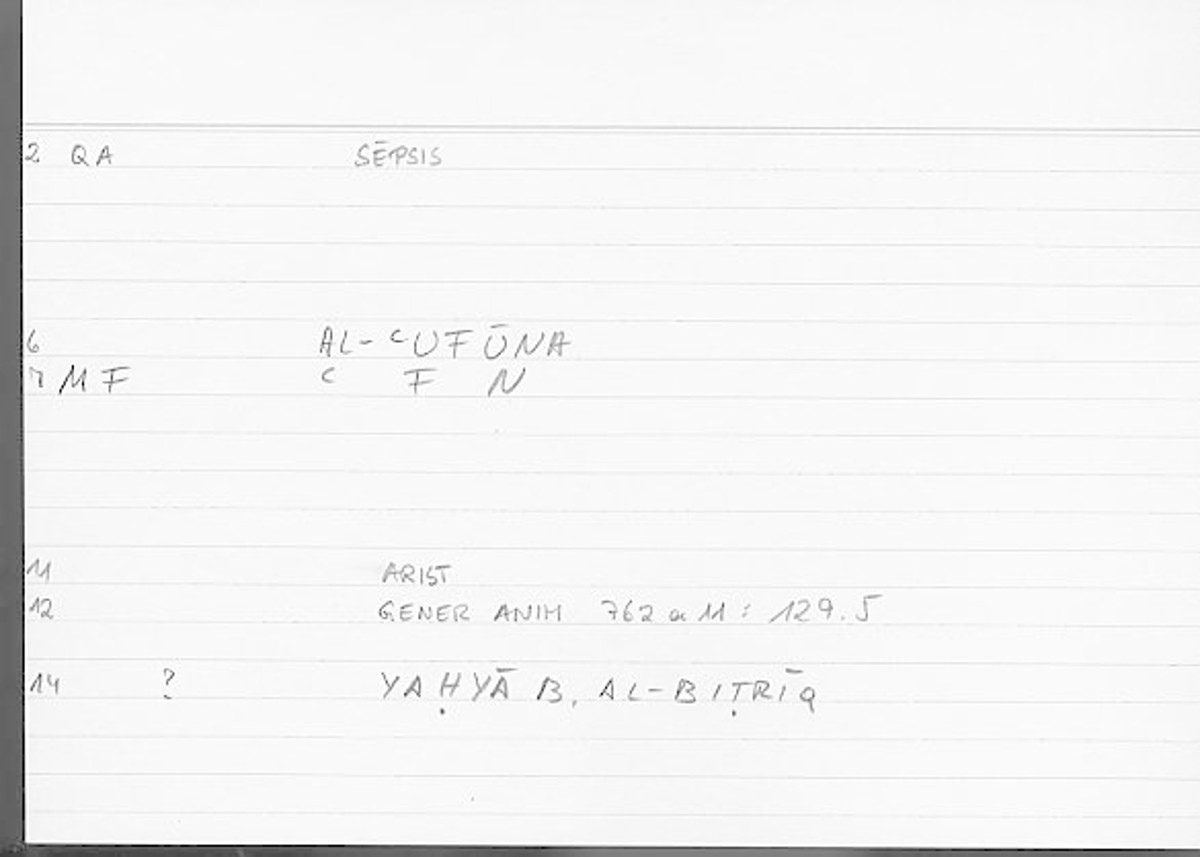 2 QA SĒPSIS
6 AL-ʿUFŪNA
7 MF ʿ F N
11 ARIST
12 GENER ANIM 762 a 11 : 129.5
14 ? YAḤYĀ B. AL-BIṬRĪQ